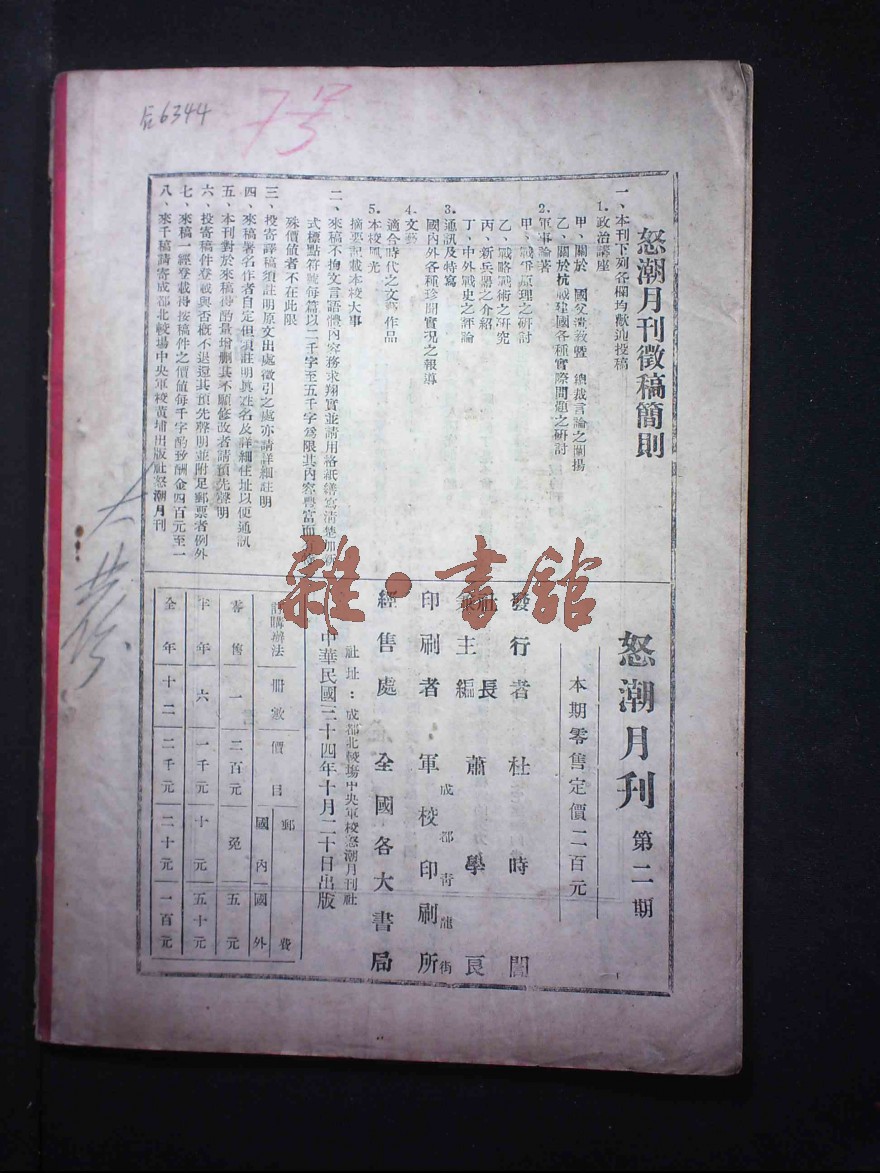 后6344
7号
怒潮月刊徵稿簡則
一、本刊下列各欄均歡迎投稿
1.政治講座
甲、關於 國父遺敎暨 總裁言論之闡揚
乙、關於抗戰建國各種實際問題之研討
2.軍事論著
甲、戰爭原理之研討
乙、戰略戰術之研究
丙、新兵器之介紹
丁、中外戰史之評論
3.通訊及特寫
國內外各種珍聞實況之報導
4.文藝
適合時代之文藝作品
5.本校風光
摘要記載本校大事
二、來稿不拘文言語體內容務求翔實並請用格紙繕寫淸楚加新
式標點符號每篇以二千字至五千字爲限其內容豐富而
殊價値者不在此限
三、投寄譯稿須註明原文出處徵引之處亦請詳細註明
四、來稿署名作者自定但須註明眞姓名及詳細住址以便通訊
五、本刊對於來稿得酌量增刪其不願修改者請預先聲明
六、投寄稿件登載與否概不退還其預先聲明並附足郵票者例外
七、來稿一經登載得按稿件之價値每千字酌致酬金四百元至一
八、來千稿請寄成都北較場中央軍校黃埔出版社怒潮月刊
怒潮月刊 第二期
本期零售定價二百元
發行者 杜時闓
社長
兼主編 蕭學良
成都靑龍街
印刷者 軍校印刷所
經售處 全國各大書局
社址：成都北較場中央軍校怒潮月刊社
中華民國三十四年十月二十日出版
訂購辦法 冊數 價目 郵費
國內 國外
零售 一 二百元 免 五元
半年 六 一千元 十元 五十元
全年 十二 二千元 二十元 一百元
雜·書館